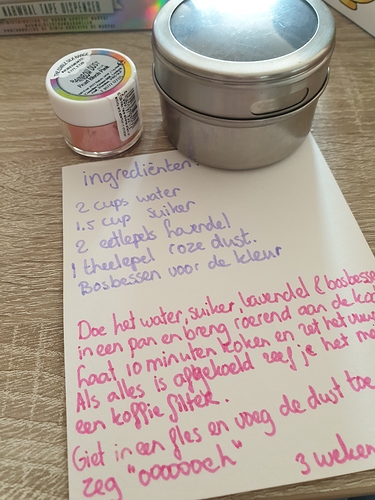 TAPE DISPENSER
ingrediënten:
2 cups water
1.5 cup suiker
2 eetlepels lavendel
1 theelepel roze dust.
Bosbessen voor de kleur
Doe het water, suiker, lavendel & bosbessen
in een pan en breng roerend aan de
Laat 10 minuten koken en zet het vuur
Als alles is afgekoeld zeef je het
een koffie filter.
Giet in een fles en voeg de dust toe
zeg "ooooooeh"
3 weken